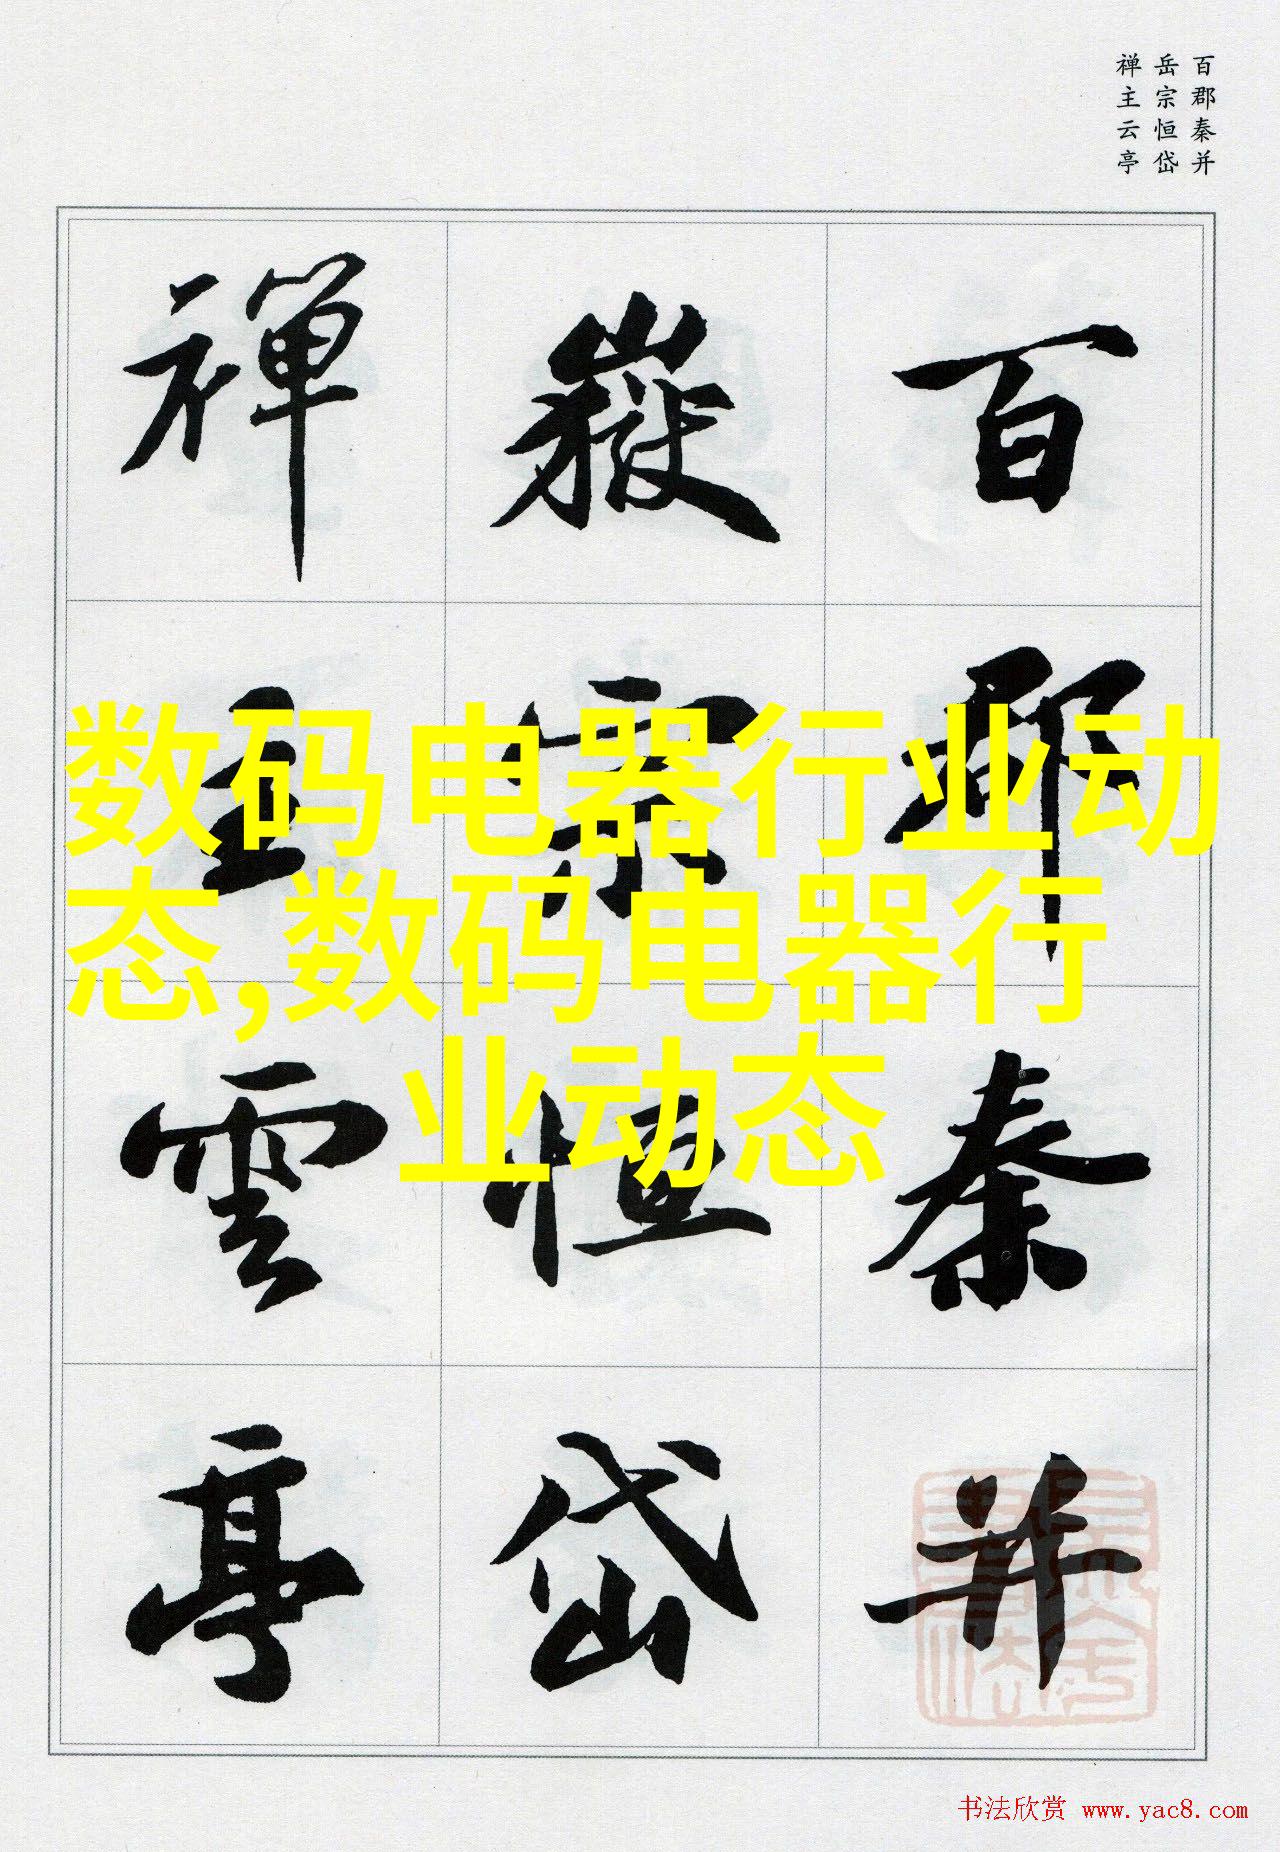 百郡秦并
岳宗恒岱
禅主云亭
百郡秦并
嶽宗恒岱
禅主雲亭
数码电器行业动
态,数码电器行
业动态
书法欣赏 www.yac8.com